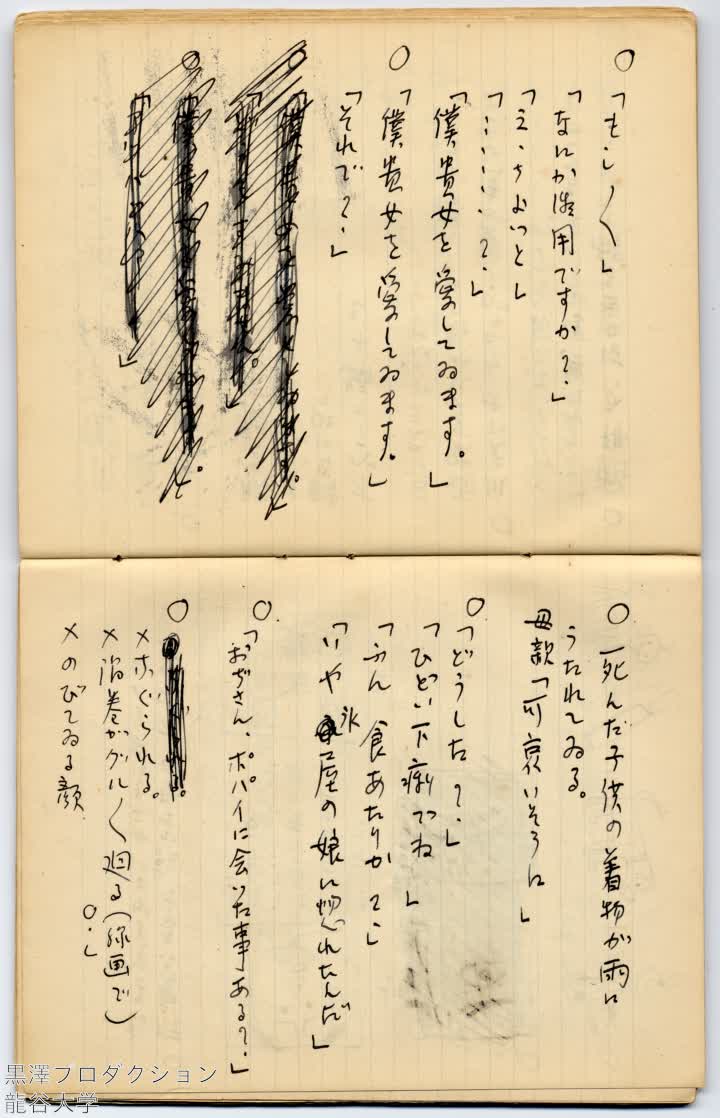 ○「もし〱」
「なにか御用ですか？・」
「え・ちよつと」
「・・・・・・？・」
「僕貴女を愛してゐます。」
○「僕貴女を愛してゐます。」
「それで？・」
○死んだ子供の着物が雨に
うたれてゐる。
母親「可哀いそうに」
○「どうした？・」
「ひどい下痢でね」
「ふん 食あたりか？・」
「いや 氷屋の娘に惚れたんだ」
○「おぢさん、ポパイに会いた事ある？・」
○
×なぐられる。
×渦巻がグル〱廻る（線画で）
○・」
×のびてゐる顔
黒澤プロダクション
龍谷大学